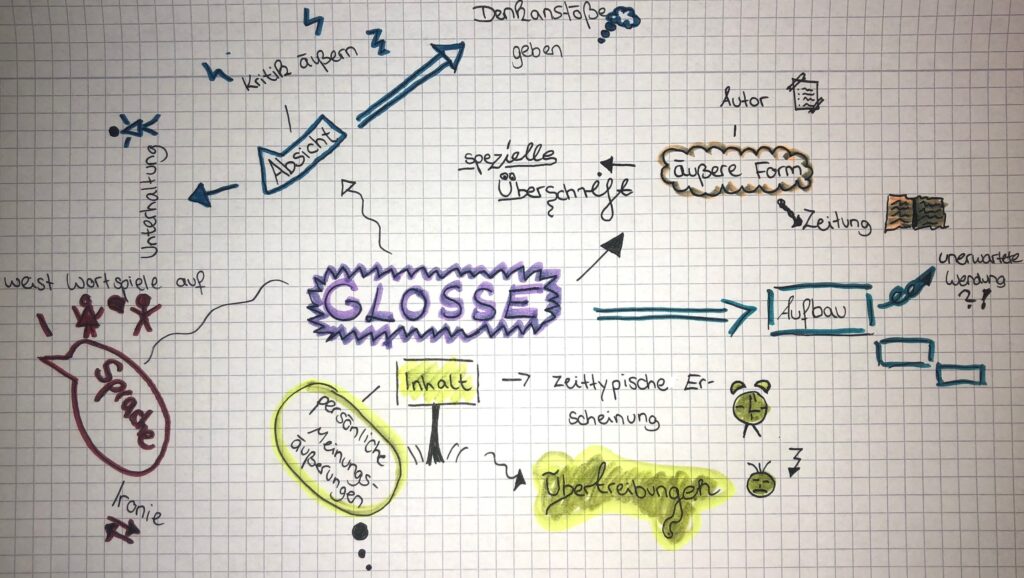 Denkanstöße
geben
Kritik äußern
Absicht
Unterhaltung
Autor
äußere Form
spezielle
Überschrift
Zeitung
unerwartete
Wendung
?!
Aufbau
GLOSSE
weist Wortspiele auf
Sprache
Ironie
Inhalt
zeittypische Er-
scheinung
persönliche
Meinungs-
äußerungen
Übertreibungen